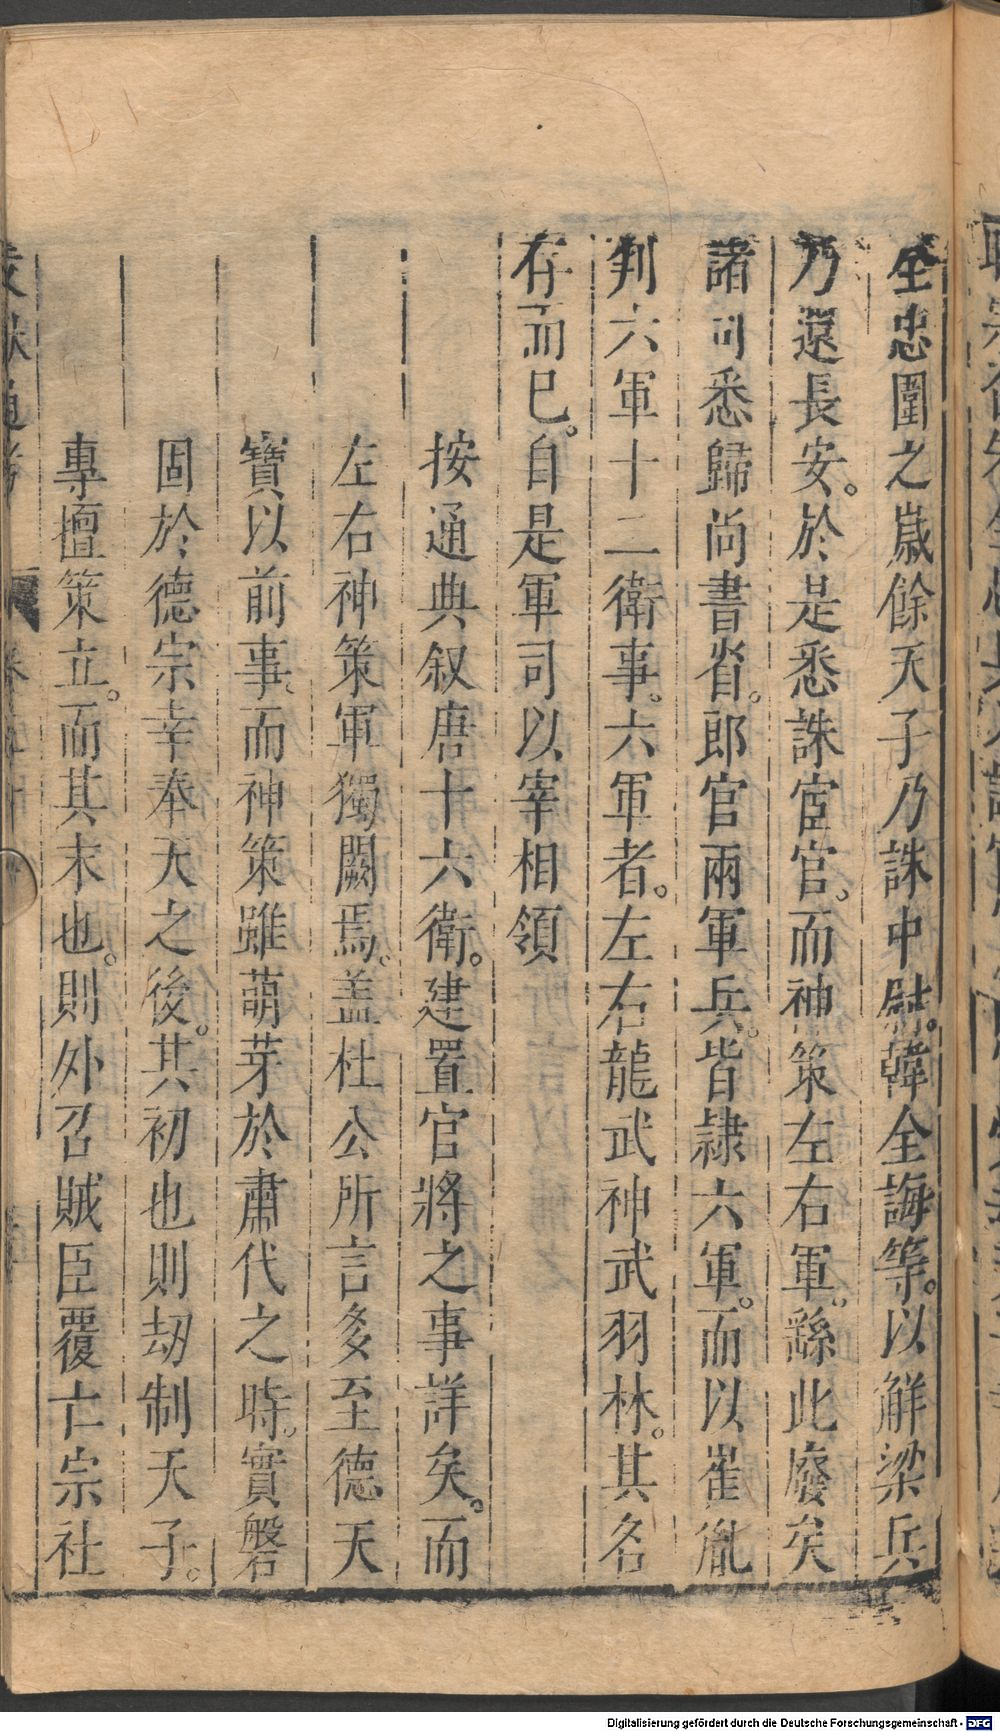 全忠圍之歲餘天子乃誅中尉。韓全誨等。以解梁兵
乃還長安。於是悉誅宦官。而神策左右軍。繇此廢矣
諸司悉歸尚書省。郎官兩軍兵。皆隷六軍。而以崔胤
判六軍十二衛事。六軍者。左右龍武神武羽林。其名
存而已。自是軍司以宰相領
按通典叙唐十六衛。建置官將之事詳矣。而
左右神策軍獨闕焉。盖杜公所言多至德天
寶以前事。而神策雖萌芽於肅代之時。實磐
固於德宗幸奉天之後。其初也則刼制天子。
專擅策立。而其末也。則外召賊臣覆亡宗社
文獻通考
Digitalisierung gefördert durch die Deutsche Forschungsgemeinschaft - DFG